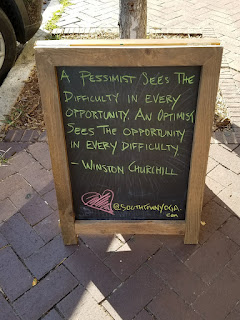 A PESSIMIST SEES THE
DIFFICULTY IN EVERY
OPPORTUNITY. AN OPTIMIST
SEES THE OPPORTUNITY
IN EVERY DIFFICULTY
- WINSTON CHURCHILL
@SOUTHTOWNYOGA.
com